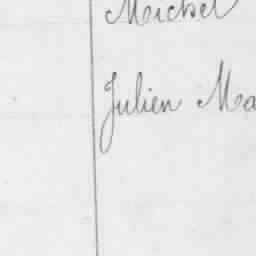 Michel
Julien Ma